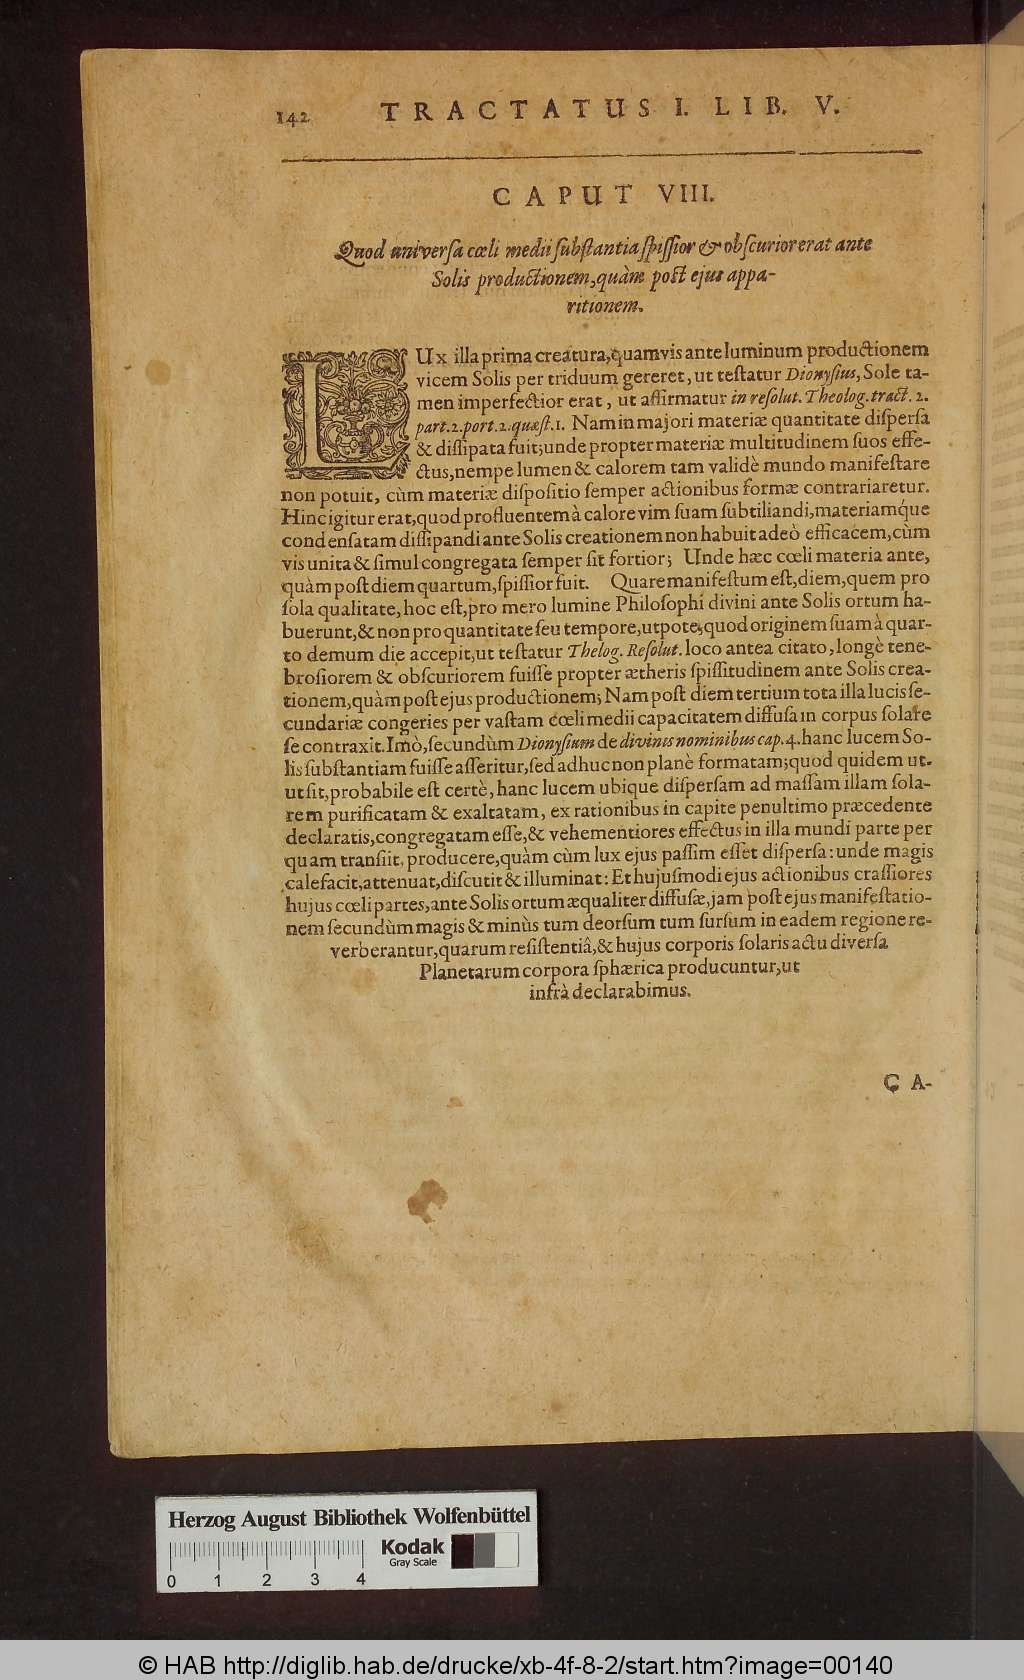 142 TRACTATUS I. LIB. V.
CAPUT VIII.
Quod universa cœli medii substantia spissior & obscurior erat ante
Solis productionem, quàm post ejus appa-
ritionem.
LUx illa prima creatura, quamvis ante luminum productionem
vicem Solis per triduum gereret, ut testatur Dionysius, Sole ta-
men imperfectior erat, ut affirmatur in resolut. Theolog. tract. 2.
part. 2. port. 2. quæst. 1. Nam in majori materiæ quantitate dispersa
& dissipata fuit; unde propter materiæ multitudinem suos effe-
ctus, nempe lumen & calorem tam validè mundo manifestare
non potuit, cùm materiæ dispositio semper actionibus formæ contrariaretur.
Hinc igitur erat, quod profluentem à calore vim suam subtiliandi, materiamq́ue
condensatam dissipandi ante Solis creationem non habuit adeò efficacem, cùm
vis unita & simul congregata semper sit fortior; Unde hæc cœli materia ante,
quàm post diem quartum, spissior fuit. Quare manifestum est, diem, quem pro
sola qualitate, hoc est, pro mero lumine Philosophi divini ante Solis ortum ha-
buerunt, & non pro quantitate seu tempore, utpote, quod originem suam à quar-
to demum die accepit, ut testatur Thelog. Resolut. loco antea citato, longè tene-
brosiorem & obscuriorem fuisse propter ætheris spissitudinem ante Solis crea-
tionem, quàm post ejus productionem; Nam post diem tertium tota illa lucis se-
cundariæ congeries per vastam cœli medii capacitatem diffusa in corpus solare
se contraxit. Imò, secundùm Dionysium de divinis nominibus cap. 4. hanc lucem So-
lis substantiam fuisse asseritur, sed adhuc non planè formatam; quod quidem ut-
ut sit, probabile est certè, hanc lucem ubique dispersam ad massam illam sola-
rem purificatam & exaltatam, ex rationibus in capite penultimo præcedente
declaratis, congregatam esse, & vehementiores effectus in illa mundi parte per
quam transiit, producere, quàm cùm lux ejus passim esset dispersa: unde magis
calefacit, attenuat, discutit & illuminat: Et hujusmodi ejus actionibus crassiores
hujus cœli partes, ante Solis ortum æqualiter diffusæ, jam post ejus manifestatio-
nem secundùm magis & minùs tum deorsum tum sursum in eadem regione re-
verberantur, quarum resistentiâ, & hujus corporis solaris actu diversa
Planetarum corpora sphærica producuntur, ut
infrà declarabimus.
CA-
Herzog August Bibliothek Wolfenbüttel
Kodak
Gray Scale
0 1 2 3 4
© HAB http://diglib.hab.de/drucke/xb-4f-8-2/start.htm?image=00140